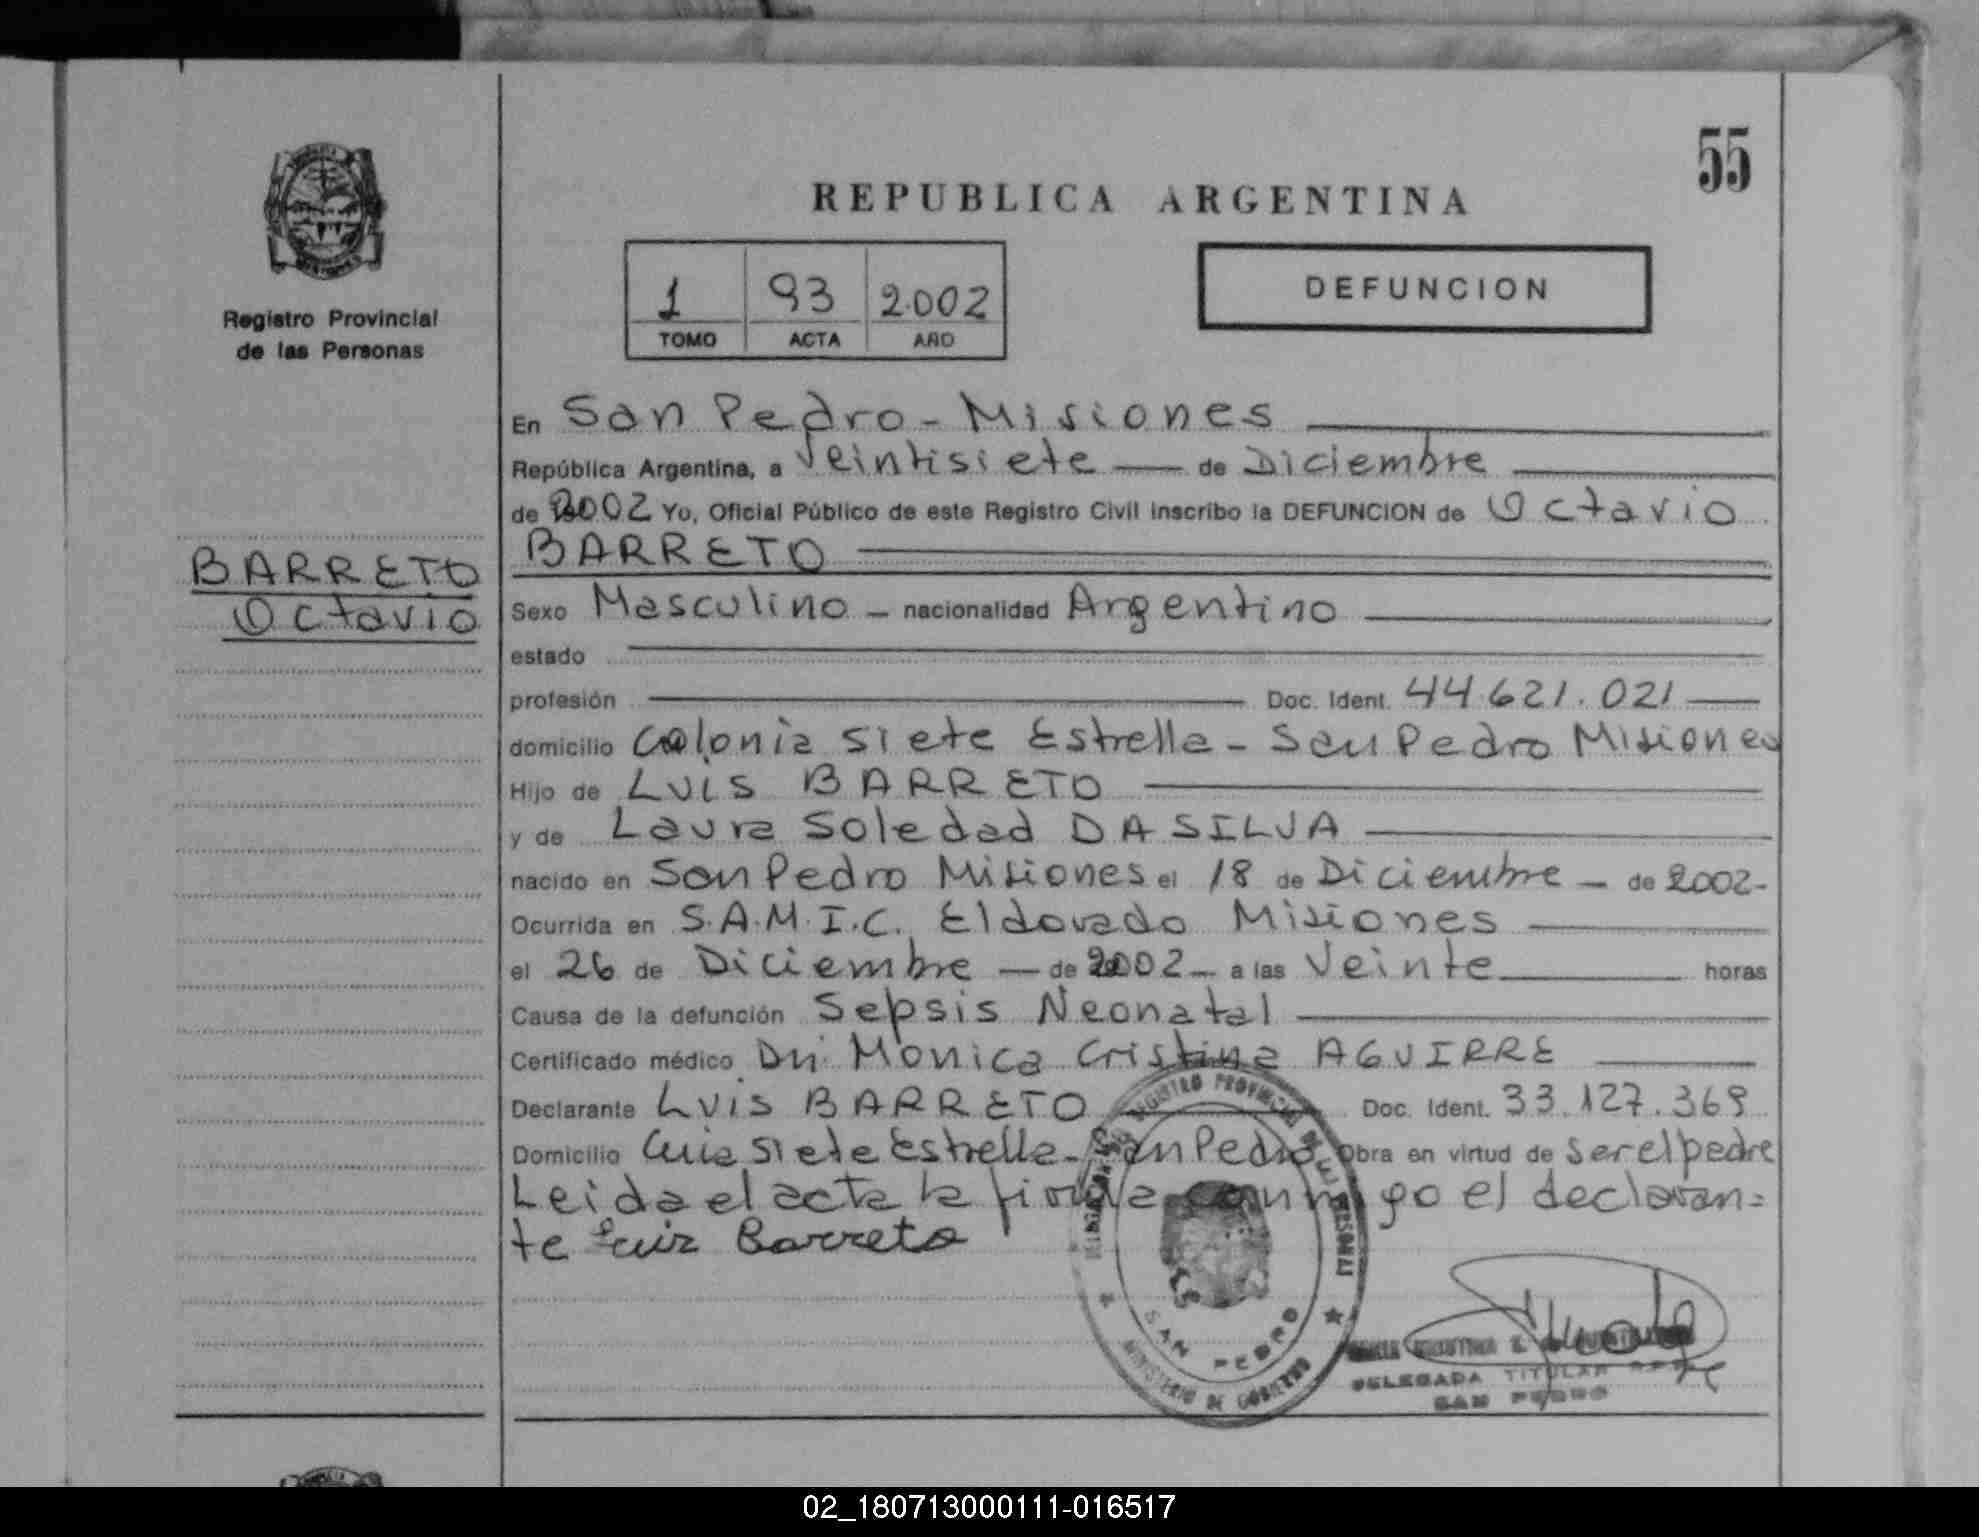 55
REPUBLICA ARGENTINA
1 93 2.002
TOMO ACTA AÑO
DEFUNCION
Registro Provincial
de las Personas
BARRETO
Octavio
En San Pedro - Misiones
República Argentina, a Veintisiete de Diciembre
de 2002 Yo, Oficial Público de este Registro Civil inscribo la DEFUNCION de Octavio
BARRETO
Sexo Masculino - nacionalidad Argentino
estado
profesión Doc. Ident. 44.621.021
domicilio Colonia Siete Estrella - San Pedro Misiones
Hijo de Luis BARRETO
y de Laura Soledad DA SILVA
nacido en San Pedro Misiones el 18 de Diciembre - de 2002-
Ocurrida en S.A.M.I.C. Eldorado Misiones
el 26 de Diciembre - de 2002 - a las Veinte horas
Causa de la defunción Sepsis Neonatal
Certificado médico Monica Cristina AGUIRRE
Declarante Luis BARRETO Doc. Ident. 33.127.369
Domicilio Siete Estrella - San Pedro Obra en virtud de ser el padre
Leida el acta la firma conmigo el declaran=
te Luis Barreto
REGISTRO PROVINCIAL DE LAS PERSONAS
SAN PEDRO
MINISTERIO DE GOBIERNO
DELEGADA TITULAR
SAN PEDRO
02_180713000111-016517